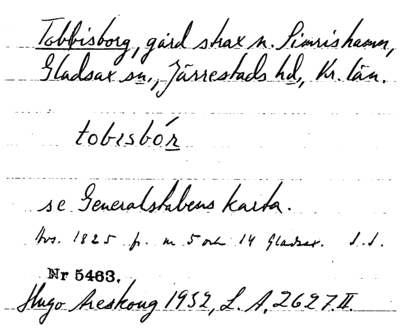 Tobbisborg, gård strax n. Simrishamn,
Gladsax sn., Järrestads hd., Kr. län.
tobısbór
se Generalstabens karta.
Avs. 1825 fr. n 5 och 14 Gladsax. S.S.
Nr 5463.
Hugo Areskoug 1932, L.A. 2627.II.